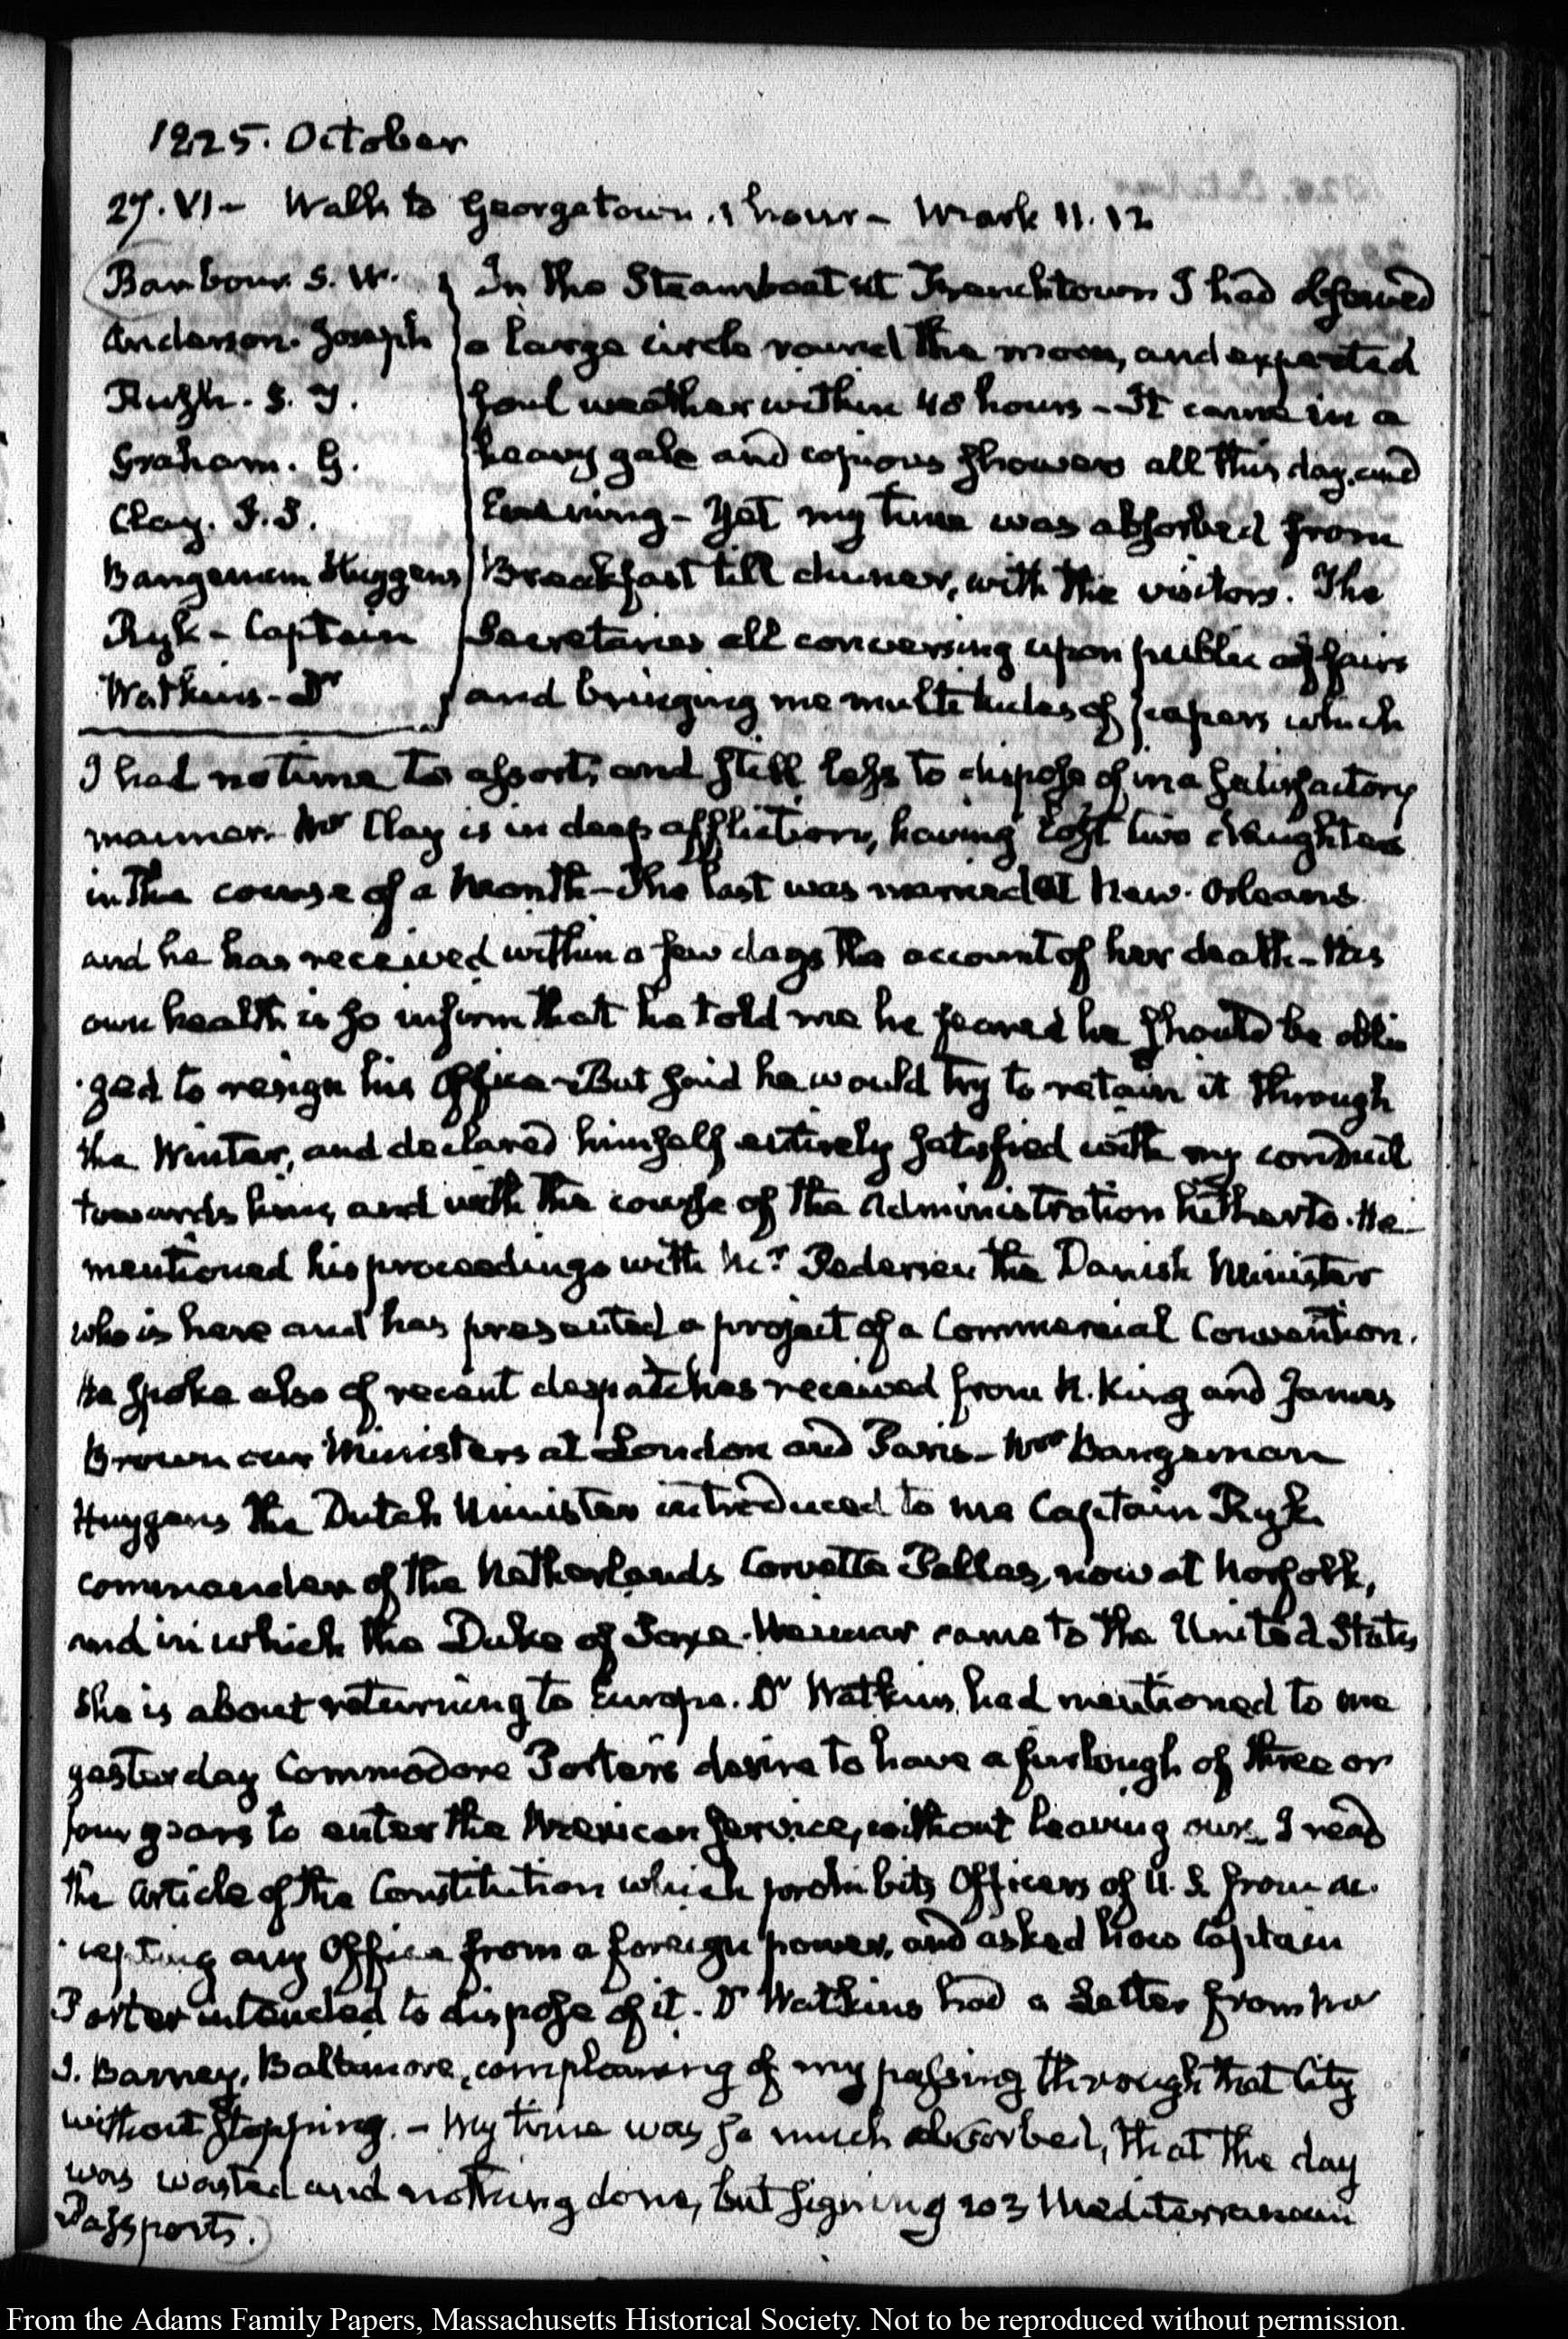 1825. October
27. VI – Walk to Georgetown. 1 hour – Mark 11. 12
Barbour. S. W.
Anderson. Joseph
Rush. S. T.
Graham. G.
Clay. S. S.
Bangeman Huygens
Ryk – Captain
Watkins – Dr
In the Steamboat at Frenchtown I had observed
a large circle round the moon, and expected
foul weather within 48 hours – It came in a
heavy gale and copious showers all this day, and
Evening – Yet my time was absorbed from
Breakfast till dinner, with the visitors. The
Secretaries all conversing upon public affairs
and bringing me multitudes of papers which
I had no time to assort, and still less to dispose of in a satisfactory
manner. Mr Clay is in deep affliction, having lost two daughters
in the course of a Month – The last was married at New-Orleans
and he has received within a few days the account of her death – His
own health is so infirm that he told me he feared he should be obli
ged to resign his Office – But said he would try to retain it through
the Winter, and declared himself entirely satisfied with my conduct
towards him, and with the course of the Administration hitherto. He
mentioned his proceedings with Mr. Pedersen the Danish Minister
who is here and has presented a project of a Commercial Convention.
He spoke also of recent despatches received from R. King and James
Brown our Ministers at London and Paris – Mr Bangeman
Huygens the Dutch Minister introduced to me Captain Ryk
commander of the Netherlands Corvette Pallas, now at Norfolk,
and in which the Duke of Saxe-Weimar came to the United States
she is about returning to Europe. Dr Watkins had mentioned to me
yesterday Commodore Porter's desire to have a furlough of three or
four years to enter the Mexican service, without leaving ours. I read
the Article of the Constitution which prohibits Officers of U. S. from ac-
cepting any Office from a foreign power, and asked how Captain
Porter intended to dispose of it. Dr Watkins had a Letter from Mr
J. Barney, Baltimore, complaining of my passing through that City
without stopping. – My time was so much absorbed, that the day
was wasted and nothing done, but signing 203 Mediterranean
Passports.
From the Adams Family Papers, Massachusetts Historical Society. Not to be reproduced without permission.